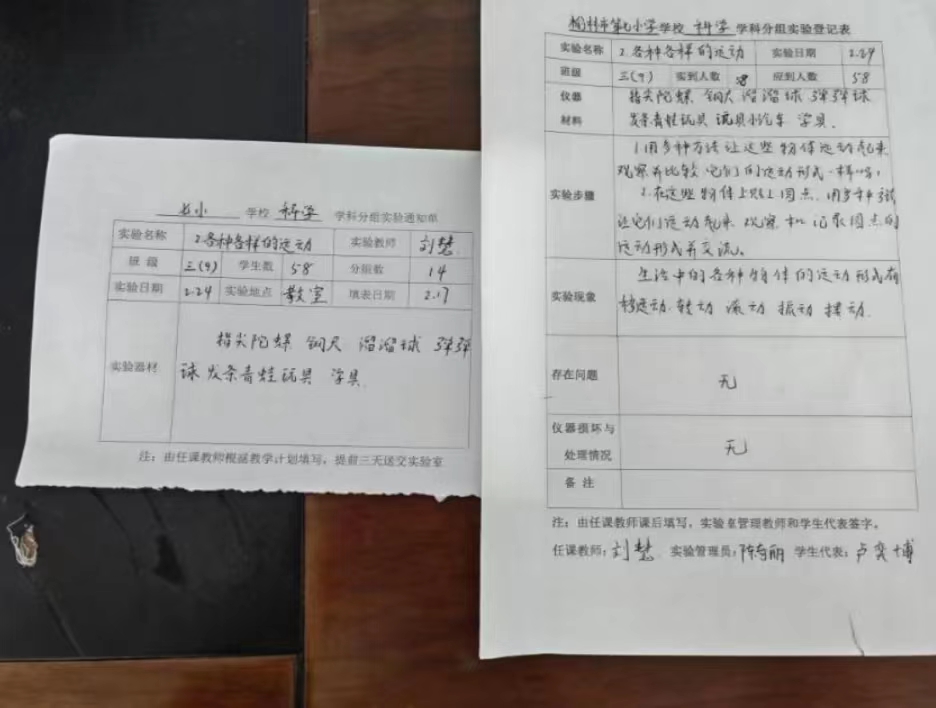 七小 学校 科学 学科分组实验通知单
实验名称 2.各种各样的运动 实验教师 刘慧
班级 三(9) 学生数 58 分组数 14
实验日期 2.24 实验地点 教室 填表日期 2.17
实验器材 指尖陀螺 钢尺 溜溜球 弹弹
球 发条青蛙玩具 学具
注:由任课教师根据教学计划填写,提前三天送交实验室
市第七小学学校 科学 学科分组实验登记表
实验名称 2.各种各样的运动 实验日期 2.24
班级 三(9) 实到人数 58 应到人数 58
仪器 指尖陀螺 钢尺 溜溜球 弹弹球
材料 发条青蛙玩具 玩具小汽车 学具.
1.用多种方法让这些物体运动起来
观察并比较它们的运动形式一样吗?
实验步骤 2.在这些物体上贴上圆点.用多种方法
让它们运动起来 观察和记录圆点的
运动形式并交流。
生活中的各种物体的运动形式有
实验现象 移运动.转动 滚动 振动 摆动.
存在问题 无
仪器损坏与
处理情况 无
备注
注:由任课教师课后填写,实验室管理教师和学生代表签字。
任课教师:刘慧 实验管理员:陈丽 学生代表:卢奕博